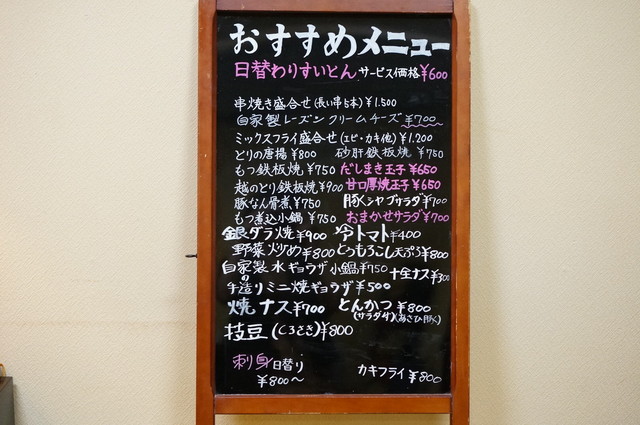 おすすめメニュー
日替わりすいとん サービス価格 ¥600
串焼き盛合せ(長い串5本) ¥1.500
自家製レーズンクリームチーズ ¥700
ミックスフライ盛合せ(エビ・カキ他) ¥1.200
とりの唐揚 ¥800 砂肝鉄板焼 ¥750
もつ鉄板焼 ¥750 だしまき玉子 ¥650
越のとり鉄板焼 ¥900 甘口厚焼玉子 ¥650
豚なん骨煮 ¥750 豚シャブサラダ ¥700
もつ煮込小鍋 ¥750 おまかせサラダ ¥700
銀ダラ焼 ¥900 冷トマト ¥400
野菜炒め ¥800 とうもろこし天ぷら ¥800
自家製水ギョウザ小鍋 ¥750 十全ナス ¥300
手造りミニ焼ギョウザ ¥500
焼ナス ¥700 とんかつ ¥800
(サラダ付)(あさひ豚)
枝豆(くろさき) ¥800
刺身日替り
¥800〜
カキフライ ¥800